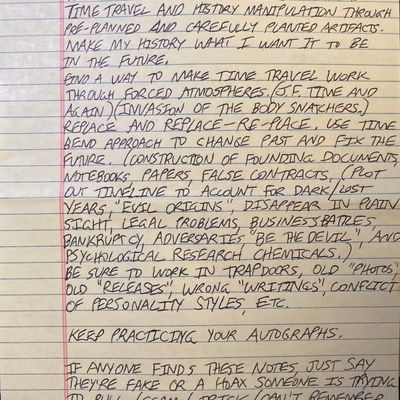 TIME TRAVEL AND HISTORY MANIPULATION THROUGH
PRE-PLANNED AND CAREFULLY PLANTED ARTIFACTS.
MAKE MY HISTORY WHAT I WANT IT TO BE
IN THE FUTURE.
FIND A WAY TO MAKE TIME TRAVEL WORK
THROUGH FORCED ATMOSPHERES. (J.F. TIME AND
AGAIN) (INVASION OF THE BODY SNATCHERS.)
REPLACE AND REPLACE-RE-PLACE. USE TIME
BEND APPROACH TO CHANGE PAST AND FIX THE
FUTURE. (CONSTRUCTION OF FOUNDING DOCUMENTS,
NOTEBOOKS, PAPERS, FALSE CONTRACTS, (PLOT
OUT TIMELINE TO ACCOUNT FOR DARK/LOST
YEARS, "EVIL ORIGINS", DISAPPEAR IN PLAIN
SIGHT, LEGAL PROBLEMS, BUSINESS BATTLES,
BANKRUPTCY, ADVERSARIES "BE THE DEVIL", AND
PSYCHOLOGICAL RESEARCH CHEMICALS.)
BE SURE TO WORK IN TRAPDOORS, OLD "PHOTOS",
OLD "RELEASES", WRONG "WRITINGS", CONFLICT
OF PERSONALITY STYLES, ETC.
KEEP PRACTICING YOUR AUTOGRAPHS.
IF ANYONE FINDS THESE NOTES, JUST SAY
THEY'RE FAKE OR A HOAX SOMEONE IS TRYING
TO PULL/SCAM/TRICK/CAN'T REMEMBER